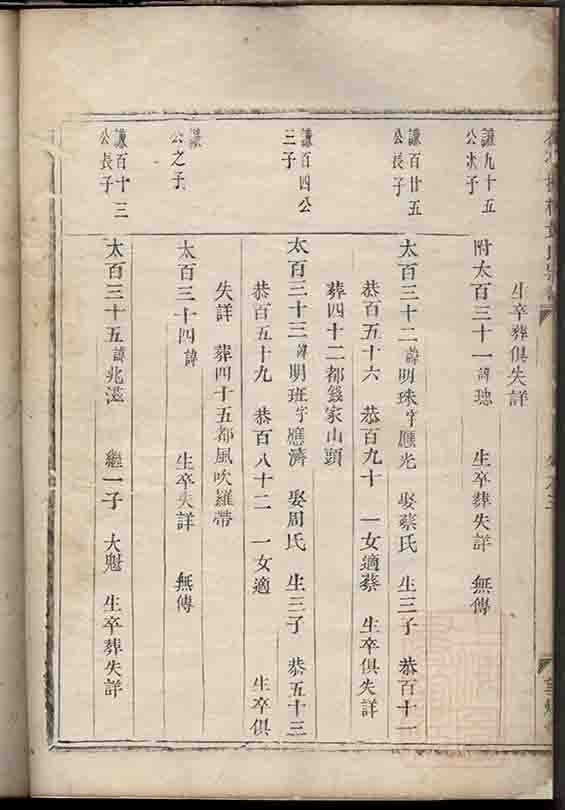 生卒葬俱失詳
謙九十五
公次子
附太百三十一諱璁 生卒葬失詳 無傳
謙百廿五
公長子
太百三十二諱明珠字應光 娶蔡氏 生三子 恭百十一
恭百五十六 恭百九十 一女適蔡 生卒俱失詳
葬四十二都錢家山頭
謙百四公
三子
太百三十三諱明班字應濟 娶周氏 生三子 恭五十三
恭百五十九 恭百八十二 一女適 生卒俱
失詳 葬四十五都風吹羅帶
謙
公之子
太百三十四諱 生卒失詳 無傳
謙百十三
公長子
太百三十五諱兆滋 繼一子 大魁 生卒葬失詳